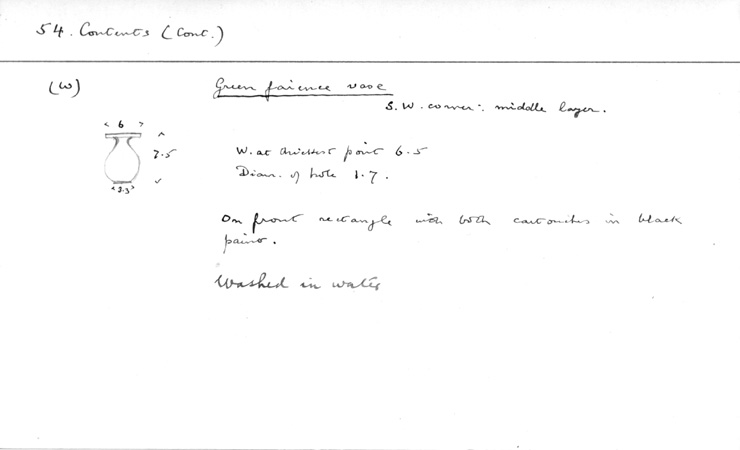 54. Contents (Cont.)
(w)
Green faience vase
S.W. corner: middle layer.
< 6 >
7.5
<3.3>
W. at thickest point 6.5
Diam. of hole 1.7.
On front rectangle with both cartouches in black
paint.
Washed in water